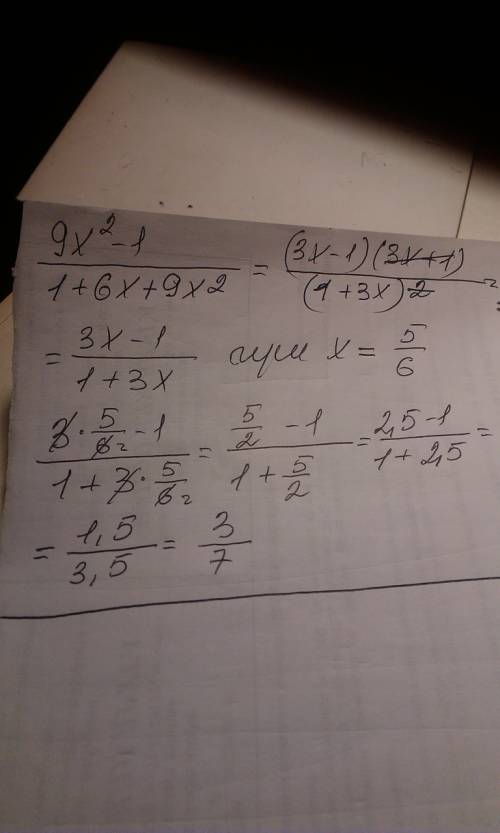 9x²-1 / 1+6x+9x2 = (3x-1)(3x+1) / (1+3x)2 =
= 3x-1 / 1+3x при x = 5/6
3·5/6₂ -1 / 1+3·5/6₂ = 5/2 -1 / 1+5/2 = 2,5-1 / 1+2,5 =
= 1,5 / 3,5 = 3/7